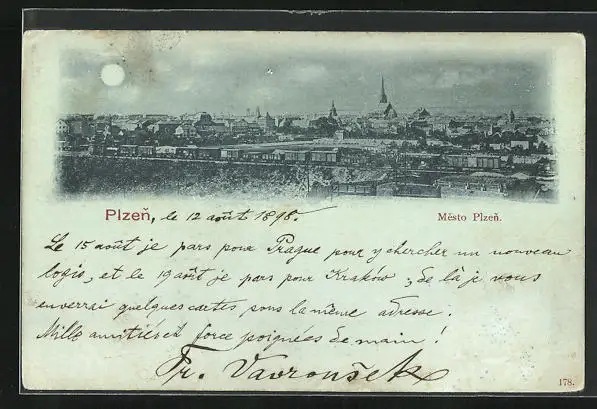 Plzeň, le 12 août 1898.
Město Plzeň.
Le 15 août je pars pour Prague pour y chercher un nouveau
logis, et le 19 août je pars pour Kraków; de là je vous
enverrai quelques cartes sous la même adresse.
Mille amitiés et force poignées de main!
Fr. Vavroušek
178.